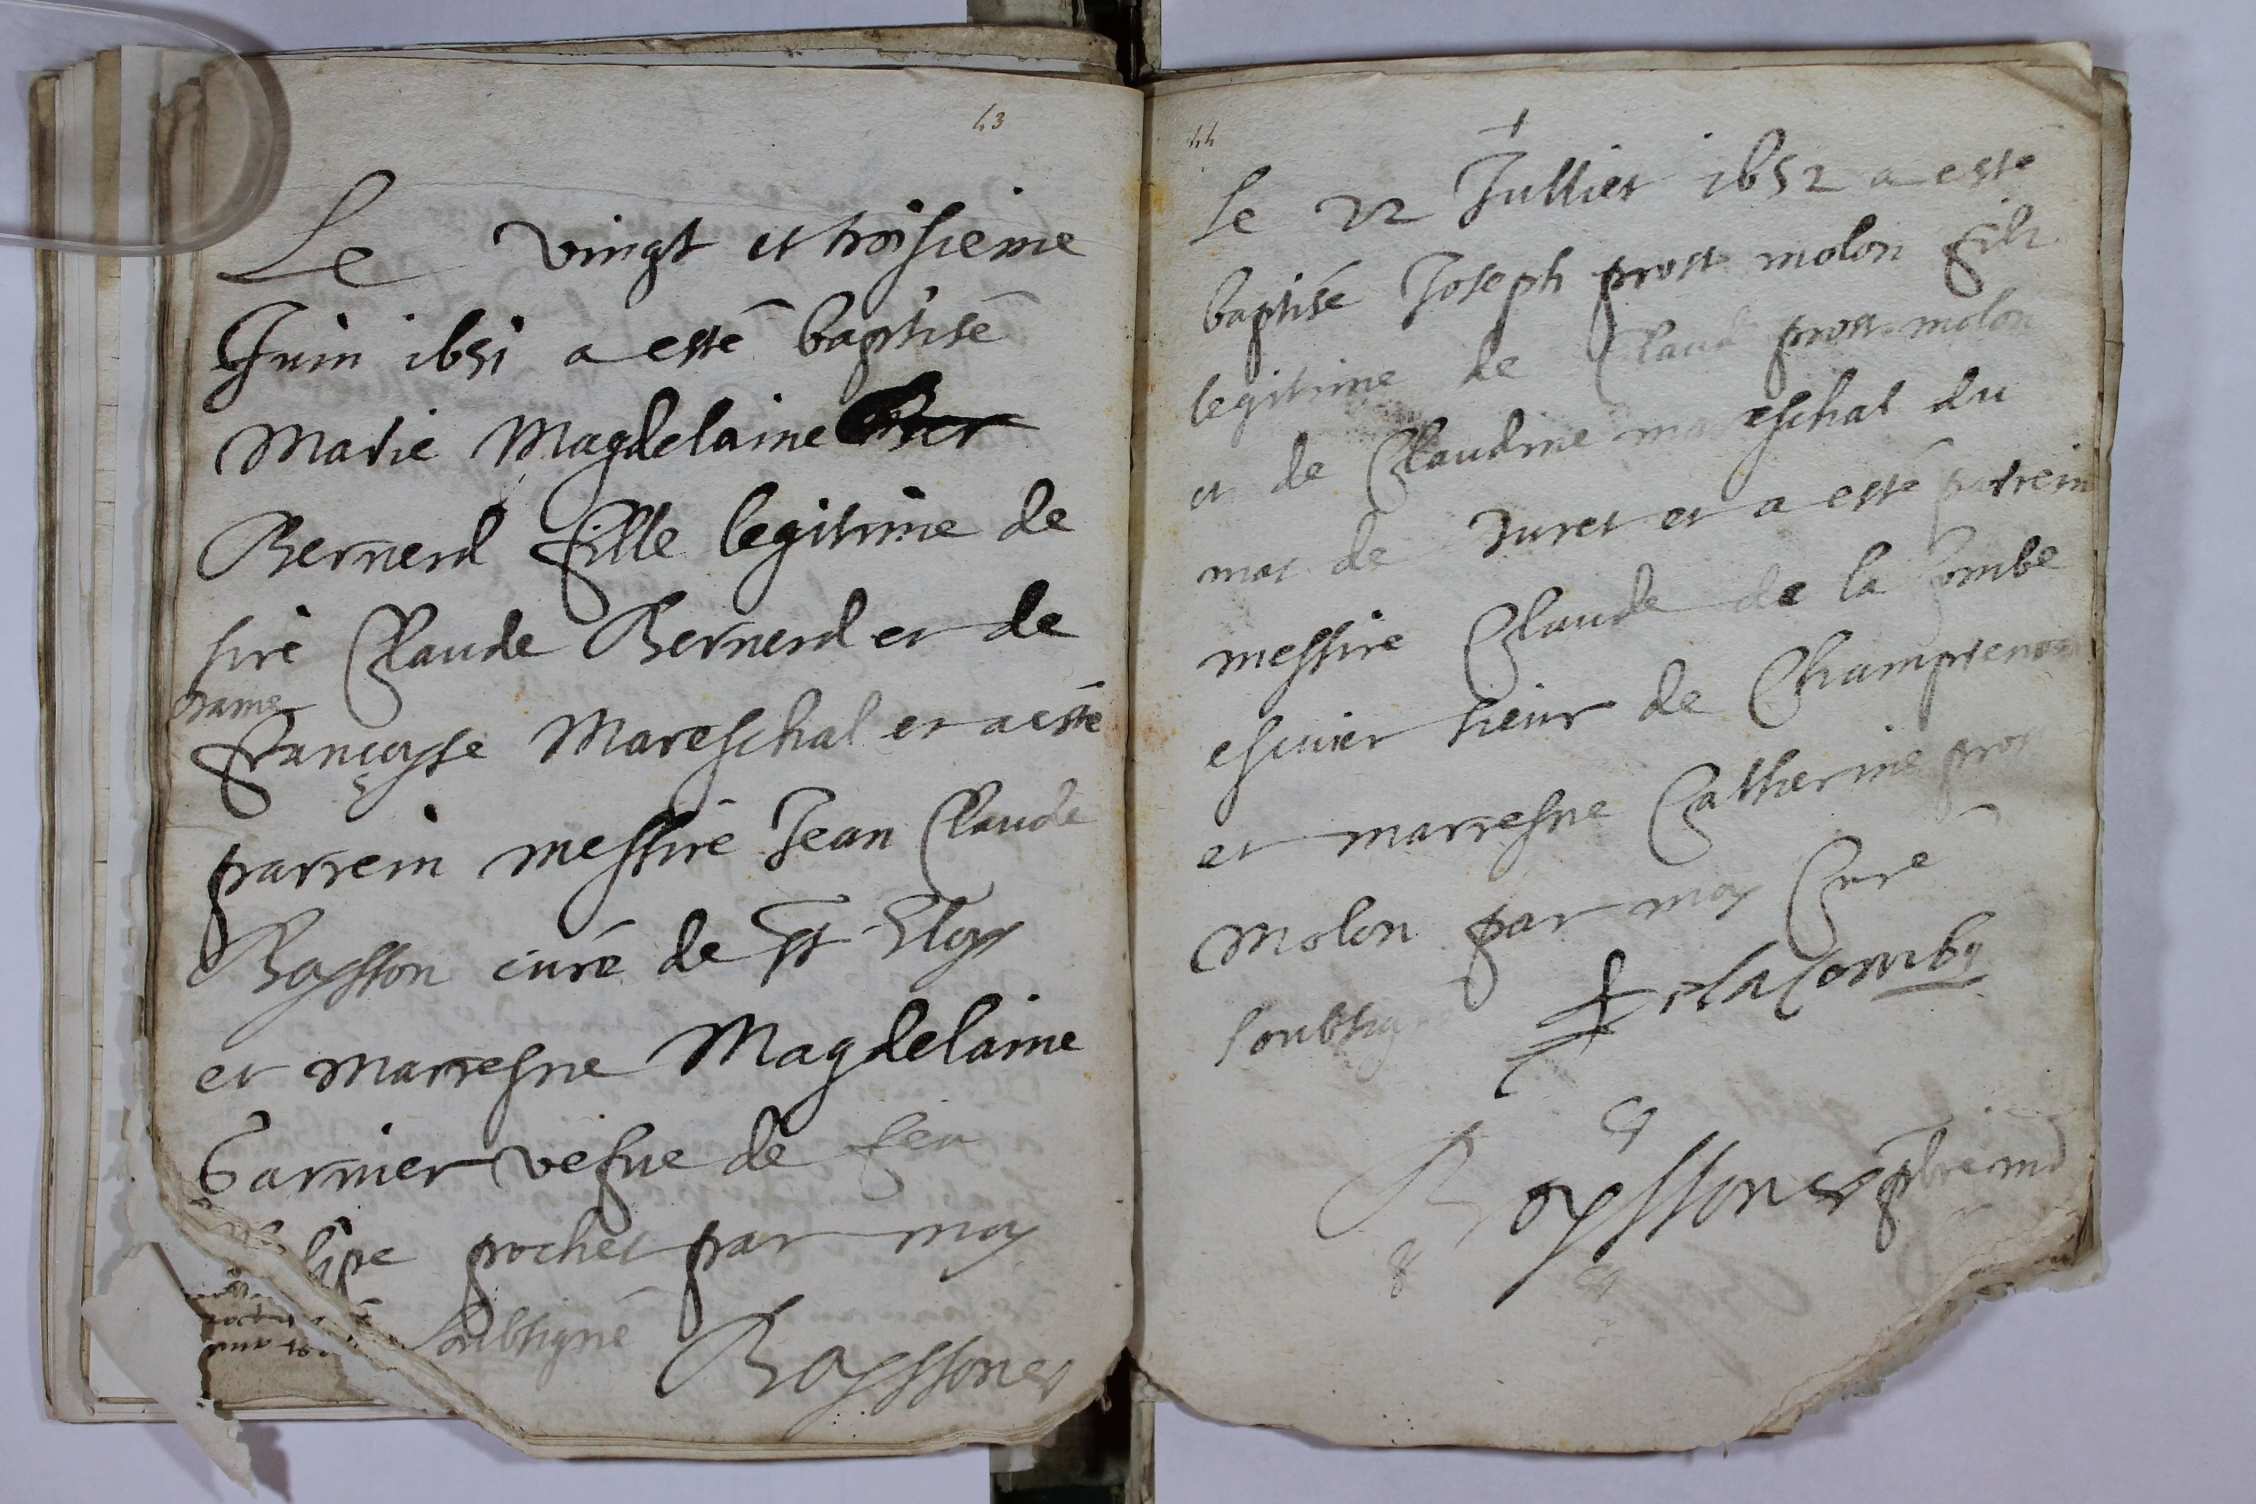 43
Le vingt et troisieme
Juin 1651 a esté baptisé
Marie Magdelaine
Bernerd fille legitime de
sire Claude Bernerd et de
Dame
françoyse Mareschal et a esté
parrein messire Jean Claude
Boysson curé de St Eloy
et marresne Magdelaine
Garnier vesue de feu
pochet par moy
soubsigné Boysson
44
Le 22 Jullier 1652 a esté
baptisé Joseph prost molon filz
legitime de Claude prost molon
et de Claudine mareschal du
mat de Juret et a esté parrein
messire Claude de la Combe
escuier sieur de
et marresne Catherine prost
Molon par moy Curé
soubsigné
Delacombe
Boysson pbre